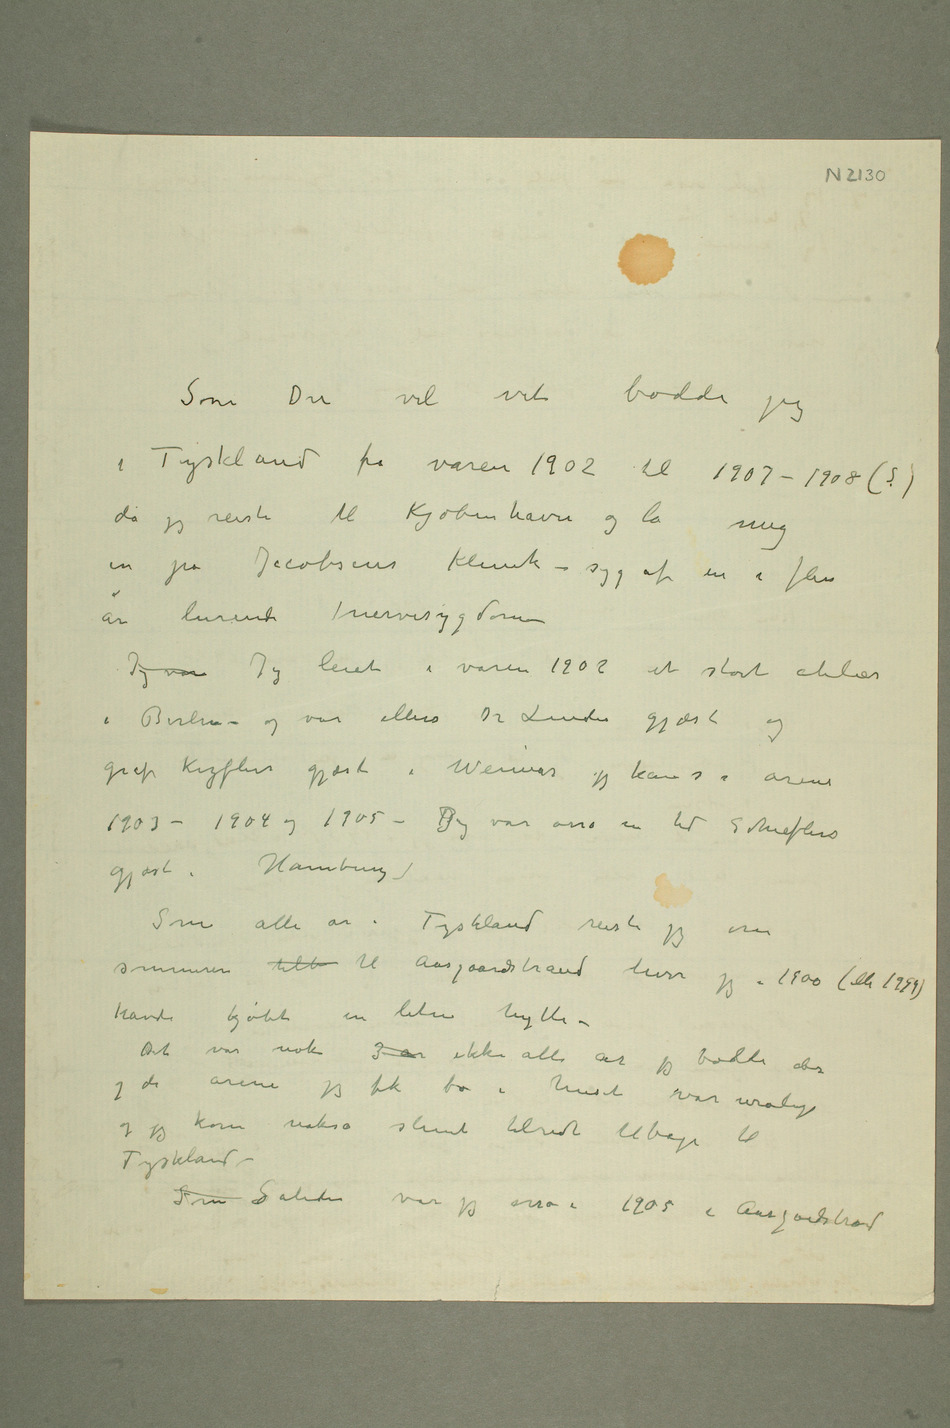 N 2130
Som De vil vite bodde jeg
i Tyskland fra våren 1902 til 1907 – 1908 (?)
da jeg reiste til Kjøbenhavn og la mig
in på Jacobsens Klinik – syg af en i flere
år lurende nervesygdom
Jeg var Jeg leiet i våren 1902 et stort atelier
i Berlin – og var ellers Dr Lindes gjæst og
graf Kesslers gjæst i Weimar jeg kan s i årene
1903 – 1904 og 1905 – Jeg var osså en tid Schieflers
gjæst i Hamburg)
Som alle år i Tyskland reiste jeg om
sommeren til Aasgaardstrand hvor jeg i 1900 (elle 1999)
havde kjøbt en liten hytte –
Det var nok 3 år ikke alle år jeg bodde der
og de årene jeg fik bo i huset var urolige
og jeg kom nokså slemt tilredt tilbage til
Tyskland –
Som Således var jeg osså i 1905 i Aasgaardstrand